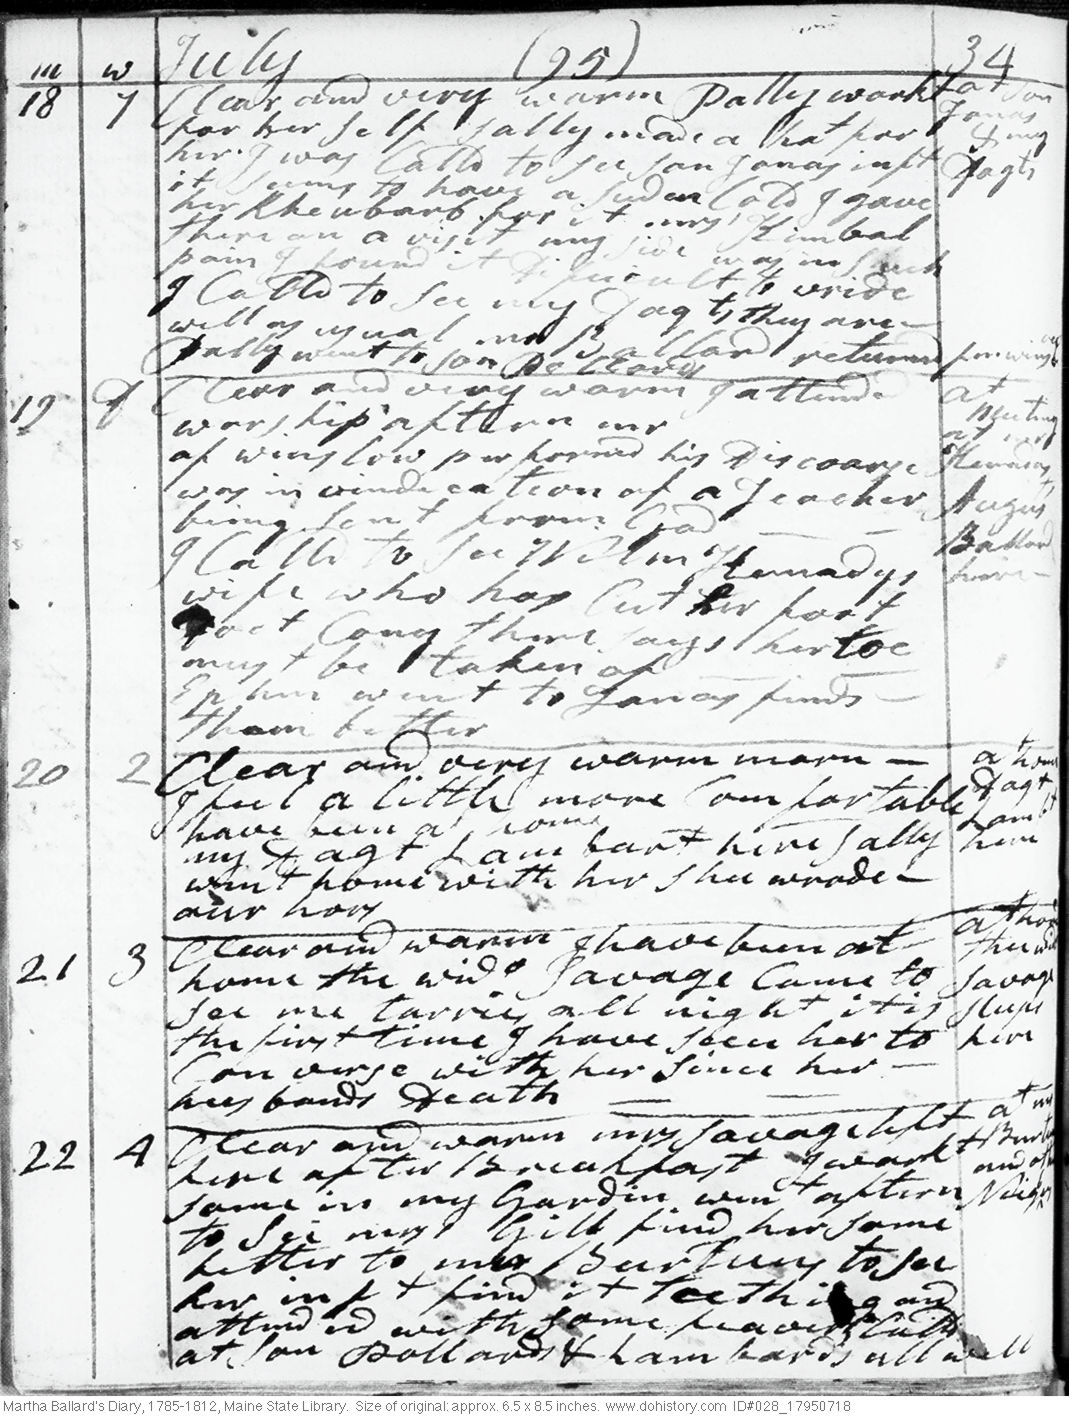 m w July (95) 34
18 7 Clear and very warm Dally workt at son
for her self Sally made a hat for Jonas
her. I was Calld to see son Jonas inft & my
it seems to have a suden Cold I gave Dagts
her Rheubarb for it mrs Kimbal
there on a visit my side was in such
pain I found it Dificult to wride
I Calld to see my Dagts, they are
well as usual mr Ballard returnd from wins
Dally went to son Pollards
19 Clear and very warm I attend at
worship aftern mr meeting
of winslow performd his Discoarse at mr
was in vindecation of a Teacher Kenadys
being sent from God August
I Calld to see Wilm Kenadys Ballard
wife who has Cut her foot here
Doct Cony there says her toe
must be taken of
Ephm went to Jonas finds
tham better
20 2 Clear and very warm morn at home
I feel a little more Comfortable Dagt
have been at home Lambt
my Dagt Lambart here Sally here
went home with her shee wrode
our hors
21 3 Clear and warm I have been at at home
home the wido Savage Came to the wido
see me tarries all night it is Savage
the first time I have seen her to sleeps
Converse with her since her here
husbands Death
22 4 Clear and warm mrs Savage left at mr
here after Breakfast I workt Burtuns
some in my Gardin went aftern and of
to see mrs Gill find her some
better to mr Burtuns to see
her inft find it teething and
attended with some feavr I Calld
at son Pollards & Lambards all well
Martha Ballard's Diary, 1785-1812, Maine State Library. Size of original: approx. 6.5 x 8.5 inches. www.dohistory.com ID#028_17950718